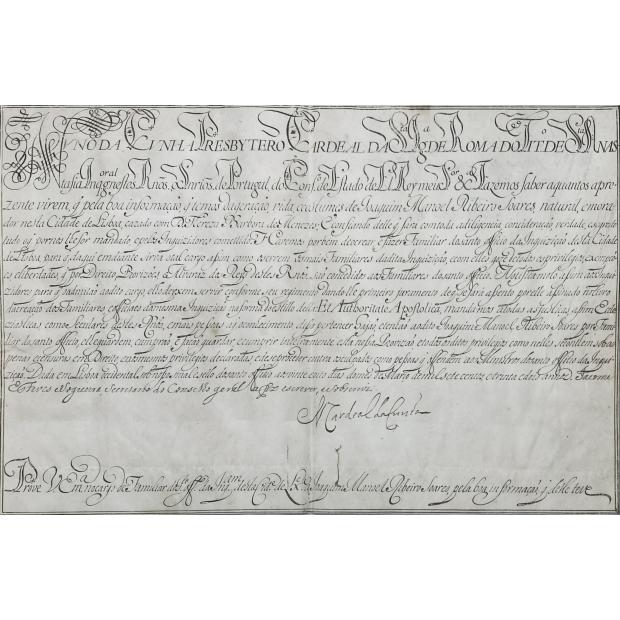 NUNO DA CUNHA, PRESBYTERO CARDEAL DA Sta Igª DE ROMA DO Tº DE Sta ANAS
tasia Inqor Geral nestes Rnos, e Snrios de Portugal, do Consº de Estado de ElRey meu Sor &ª Fazemos saber aquantos apre
zente virem, q pela boa informação q temos da geração, vida, e costumes de Joaquim Manoel Ribeiro Soares natural, emora
dor nesta Cidade de Lisboa, cazado com D. Thereza Barbora de Menezes; Confiando delle q fará com toda a diligencia, consideração verdade, e segredo
tudo o q por nos lhe for mandado, e pelos Inquizidores cometido. Havemos por bem de o crear, e fazer Familiar do santo officio da Inquizição desta Cidade
de Lisboa para q daqui em diante sirva o tal cargo assim como o servem os mais Familiares da dita Inquizição, e com elle goze de todos os privilegios, izençoes
e liberdades, q por Direito, Provizoes, e Alvaraz dos Reys destes Rnos são concedidos aos Familiares do santo officio. Notificamolo assim aos Inqui
zidores para q o admitão ao dito cargo, e lho deixem servir conforme o seu regimento dando lhe primeiro juramento de q se fará assento por elle assinado no livro
da creação dos Familiares e officiaes da mesma Inquizição na forma do estillo della: Et Authoritate Apostolica, mandamos a todas as justiças assim Eccle
ziasticas como seculares destes Rnos, e mais pessoas, a q o conhecimento desta pertencer hajão e tenhão ao dito Joaquim Manoel Ribeiro Soares por Fami
liar do santo officio, e lhe guardem, cumprão, e fação guardar e cumprir inteiramente esta nossa Provizão, e todos os ditos privilegios como nelles se conthem, sob as
penas e censuras em Direito, e nos mesmos privilegios declaradas, e de se proceder contra os culpados como pessoas q offendem aos Ministros do santo officio da Inqui
zição. Dada em Lisboa occidental, sob nosso sinal, e sello do santo officio aos vinte e oito dias do mes de Março de mil e sete centos e trinta e annos. Jacome
Esteves Nogueira, Secretario do Conselho geral a fiz escrever, e sobscrevi.
N Cardeal da Cunha
Prove V. Emª no cargo de Familiar do Stº offº da Inqam desta Cide de Lxª a Joaquim Manoel Ribeiro Soares pela boa informação, q delle teve